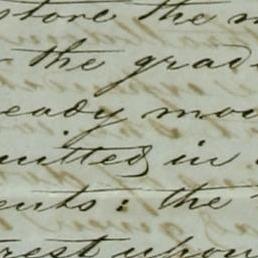 store the
the grad
eady mou
mitted in
ents: the
rest upon